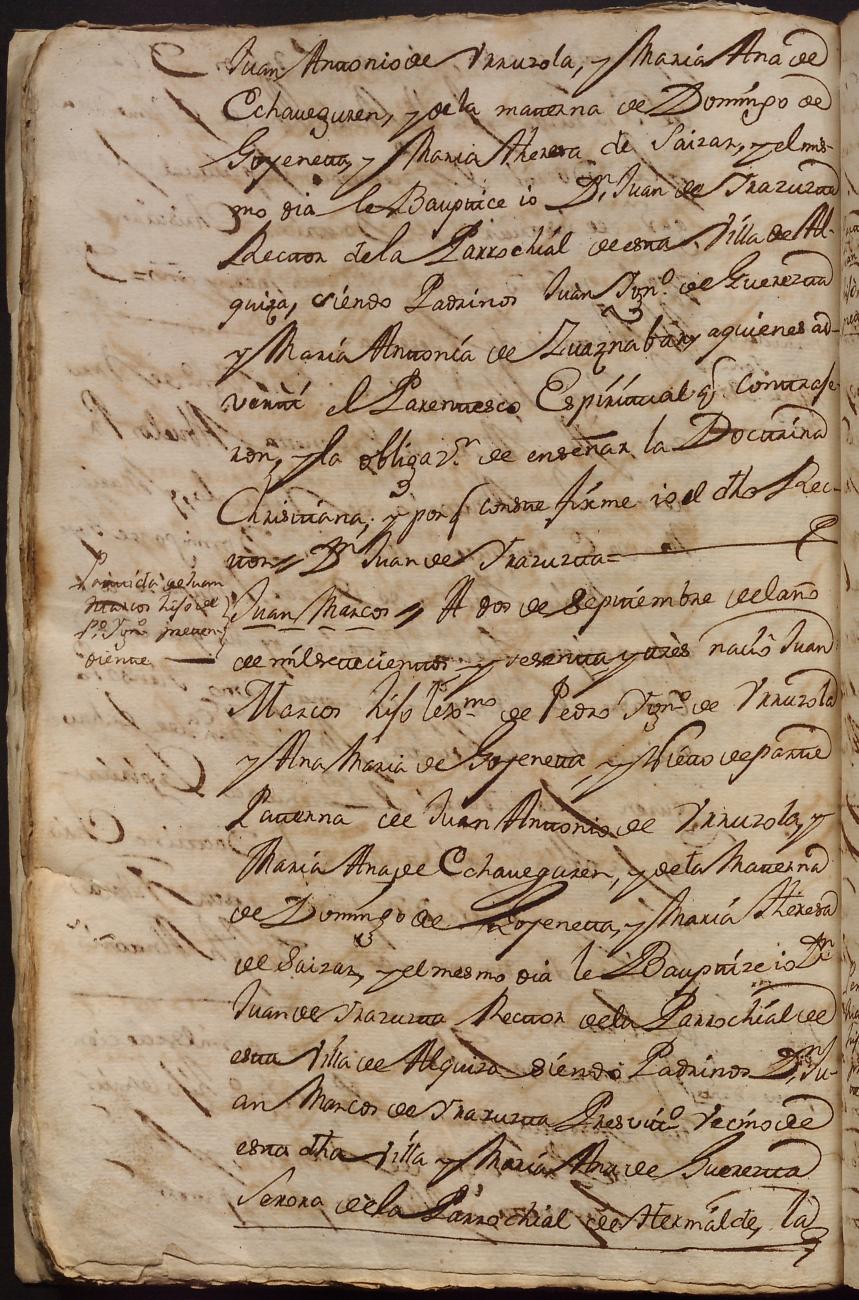 Juan Antonio de Yrrurola, y Maria Ana de
Echaueguren, y de la materna de Domingo de
Goyeneta, y Maria Theresa de Saizar, y el mis-
mo dia le Bauptice io Dn. Juan de Yrazuzta
Rector de la Parrochial de esta Villa de Al-
quiza, siendo Padrinos Juan Ygno. de Guerezta
y Maria Antonia de Zuaznabar, a quienes ad-
verti el Parentesco Espiritual q contraje
ron, y la obligazn. de enseñar la Doctrina
Christiana, y por q conste firme io el dho Rec-
tor // Dn. Juan de Yrazuzta =
Partida de Juan
Marcos hijo de
Po. Ygno. preten-
diente
Juan Marcos // A dos de Septiembre del año
de mil setecientos y sesenta y tres nacio Juan
Marcos hijo lexmo. de Pedro Ygno. de Yrrurola
y Ana Maria de Goyeneta y Nieto de parte
Paterna de Juan Antonio de Yrrurola, y
Maria Ana de Echaueguren, y de la Materna
de Domingo de Goyeneta, y Maria Theresa
de Saizar, y el mesmo dia le Bauptize io Dn.
Juan de Yrazuzta Rector de la Parrochial de
esta Villa de Alquiza siendo Padrinos Dn. Ju-
an Marcos de Yrazuzta Presvito. vecino de
esta dha Villa y Maria Ana de Guerezta
Serora de la Parrochial de Hermalde, la